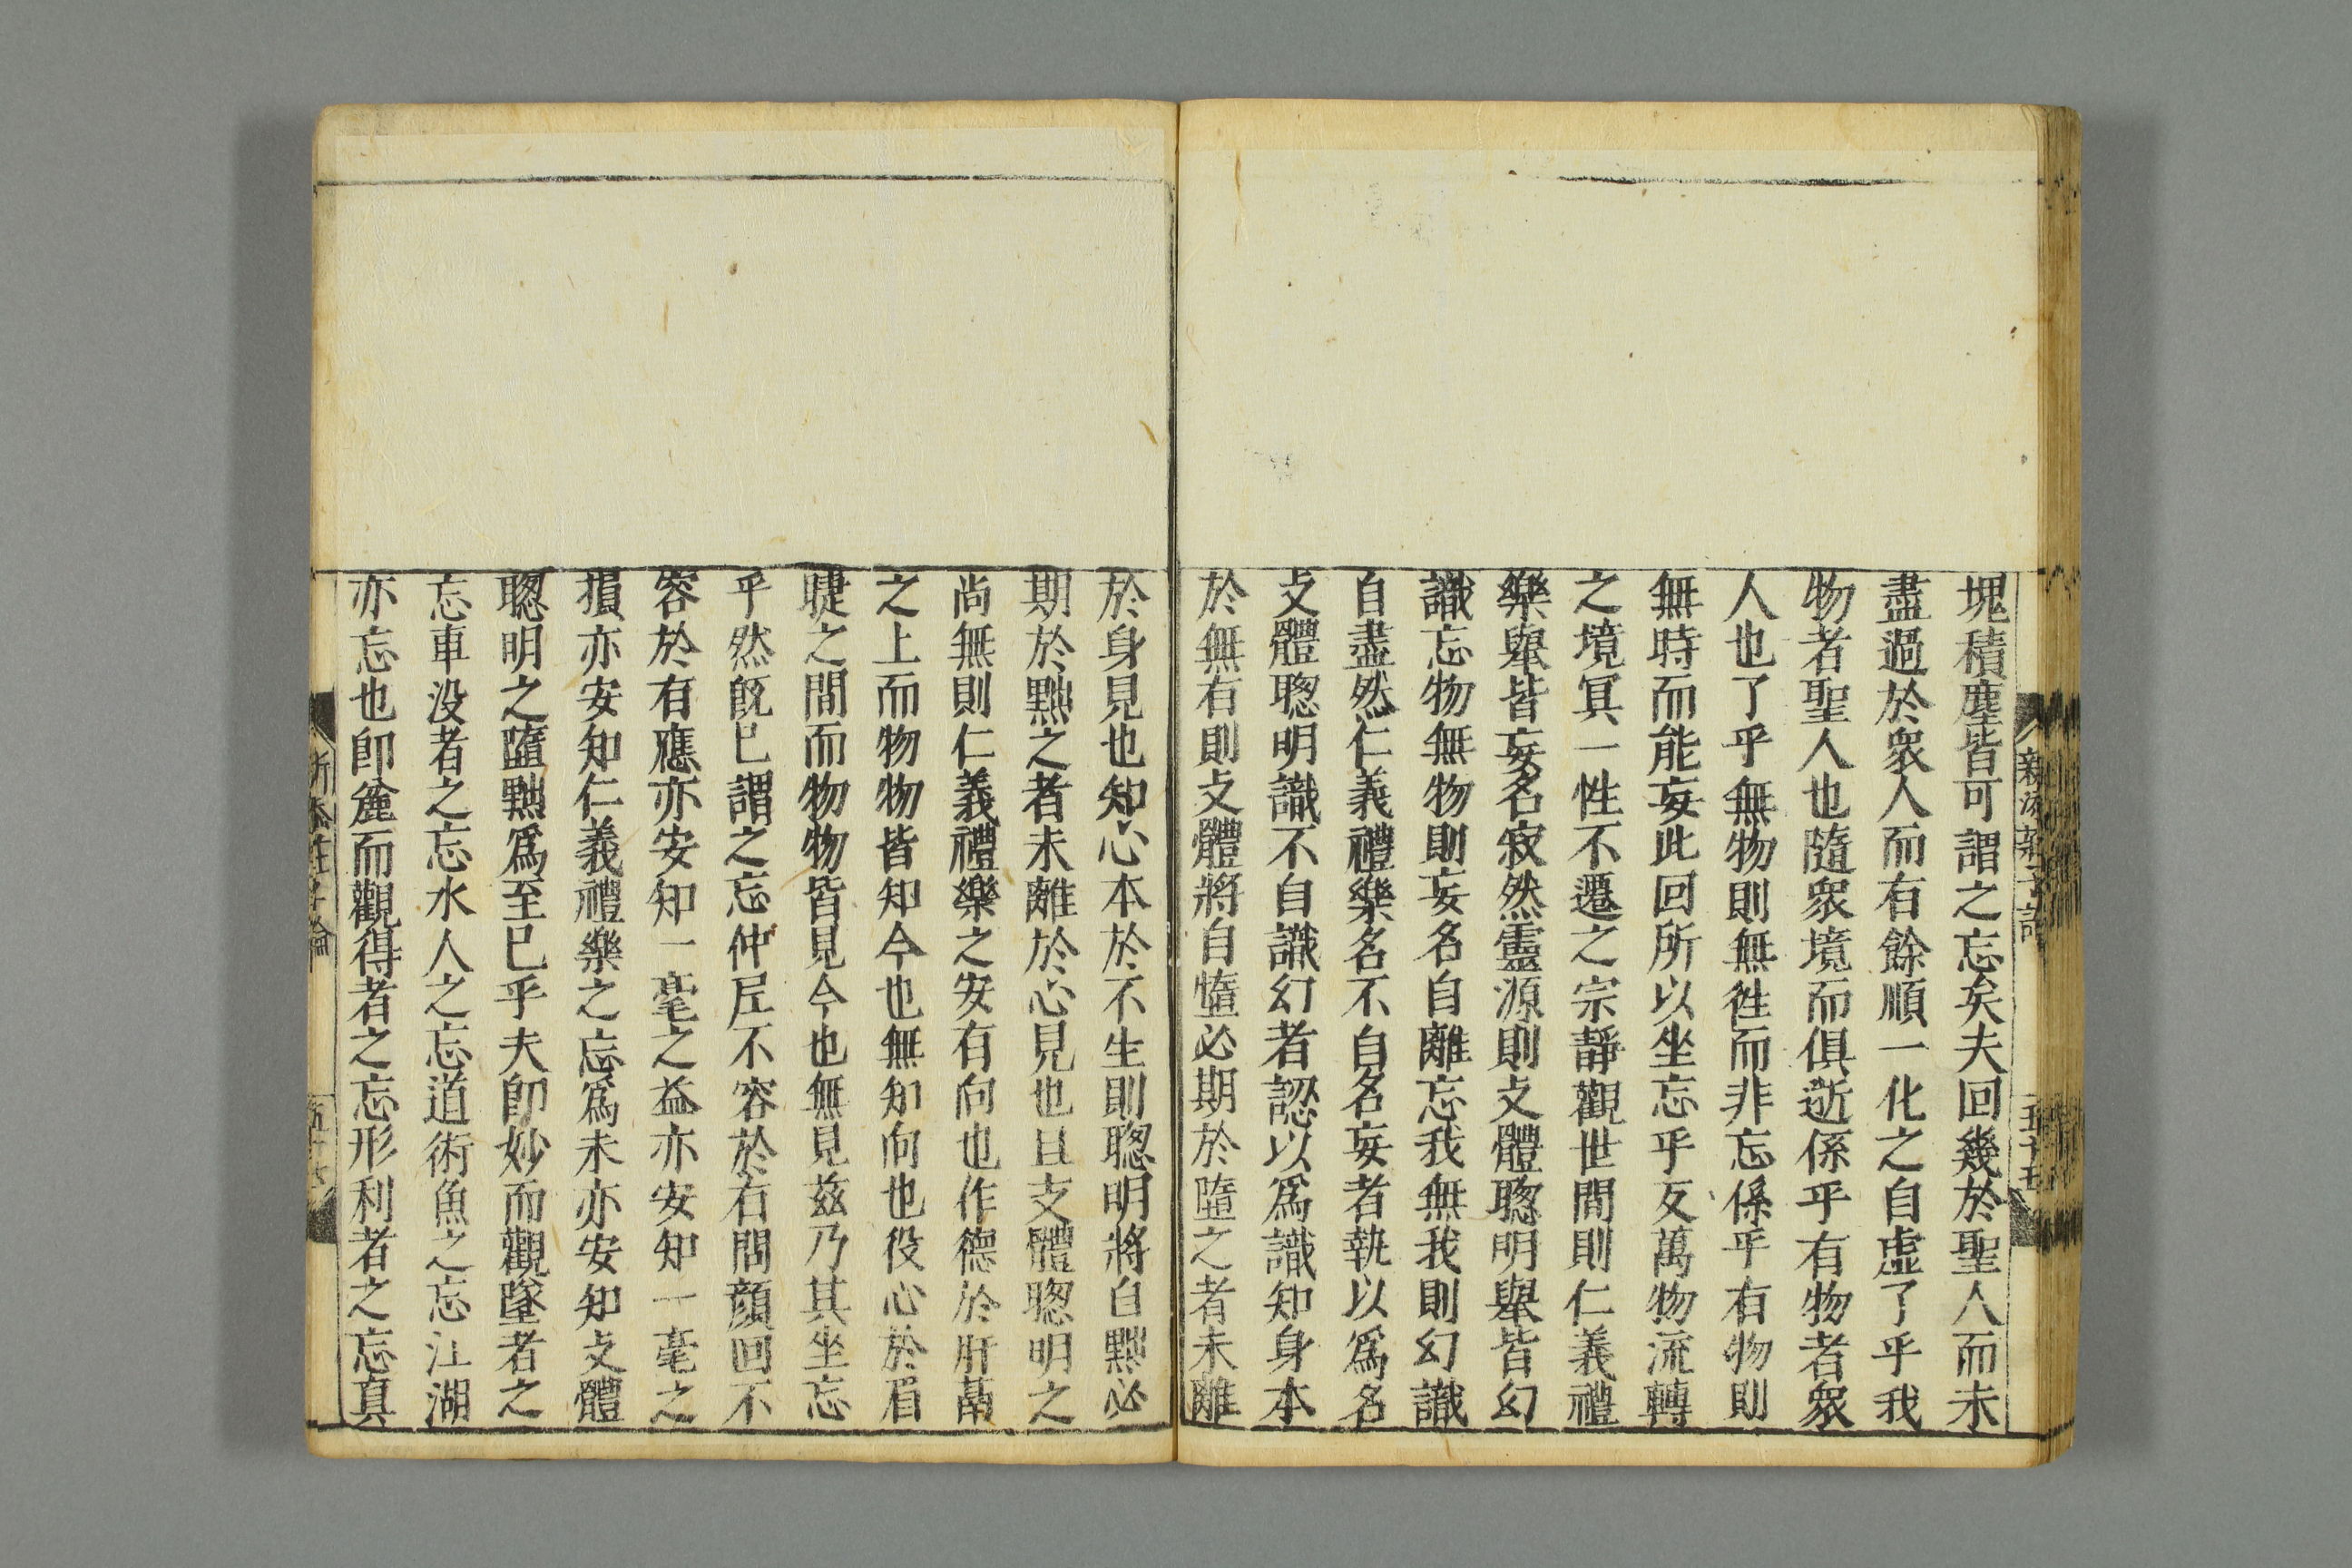 塊積塵皆可謂之忘矣夫回幾於聖人而未
盡過於衆人而有餘順一化之自虛了乎我
物者聖人也隨衆境而俱逝係乎有物者衆
人也了乎無物則無徃而非忘係乎有物則
無時而能妄此回所以坐忘乎反萬物流轉
之境冥一性不遷之宗靜觀世間則仁義禮
樂舉皆妄名寂然靈源則攴體聦明舉皆幻
識忘物無物則妄名自離忘我無我則幻識
自盡然仁義禮樂名不自名妄者執以爲名
攴體聦明識不自識幻者認以爲識知身本
於無有則攴體將自墮必期於墮之者未離
於身見也知心本於不生則聦明將自黜必
期於黜之者未離於心見也且支體聦明之
尚無則仁義禮樂之安有向也作德於肝膈
之上而物物皆知今也無知向也役心於眉
睫之間而物物皆見今也無見茲乃其坐忘
乎然旣已謂之忘仲尼不容於有問顏回不
容於有應亦安知一毫之益亦安知一毫之
損亦安知仁義禮樂之忘爲未亦安知攴體
聦明之墮黜爲至巳乎夫卽妙而觀墜者之
忘車没者之忘水人之忘道術魚之忘江湖
亦忘也卽麄而觀得者之忘形利者之忘真